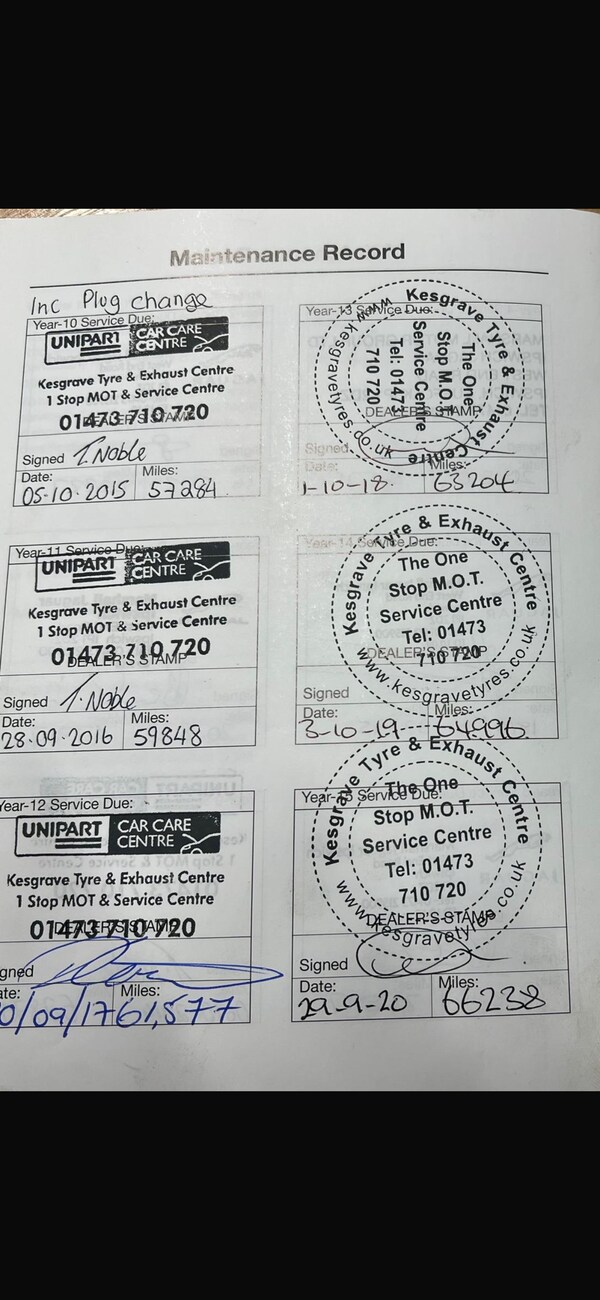 Maintenance Record
Inc Plug change
Year-10 Service Due:
UNIPART CAR CARE CENTRE
Kesgrave Tyre & Exhaust Centre
1 Stop MOT & Service Centre
01473 710 720
DEALER'S STAMP
Signed T. Noble
Date: Miles:
05-10-2015 57284
Year-11 Service Due:
UNIPART CAR CARE CENTRE
Kesgrave Tyre & Exhaust Centre
1 Stop MOT & Service Centre
01473 710 720
DEALER'S STAMP
Signed T. Noble
Date: Miles:
28.09.2016 59848
Year-12 Service Due:
UNIPART CAR CARE CENTRE
Kesgrave Tyre & Exhaust Centre
1 Stop MOT & Service Centre
01473 710 720
DEALER'S STAMP
gned
ate: Miles:
0/09/17 61,577
Year-13 Service Due:
Kesgrave Tyre & Exhaust Centre
www.kesgravetyres.co.uk
The One
Stop M.O.T.
Service Centre
Tel: 01473
710 720
DEALER'S STAMP
Signed
Date: Miles:
1-10-18. 63204
Year-14 Service Due:
Kesgrave Tyre & Exhaust Centre
www.kesgravetyres.co.uk
The One
Stop M.O.T.
Service Centre
Tel: 01473
710 720
DEALER'S STAMP
Signed
Date: Miles:
3-10-19 64996
Year- Service Due:
Kesgrave Tyre & Exhaust Centre
www.kesgravetyres.co.uk
The One
Stop M.O.T.
Service Centre
Tel: 01473
710 720
DEALER'S STAMP
Signed
Date: Miles:
29-9-20 66238